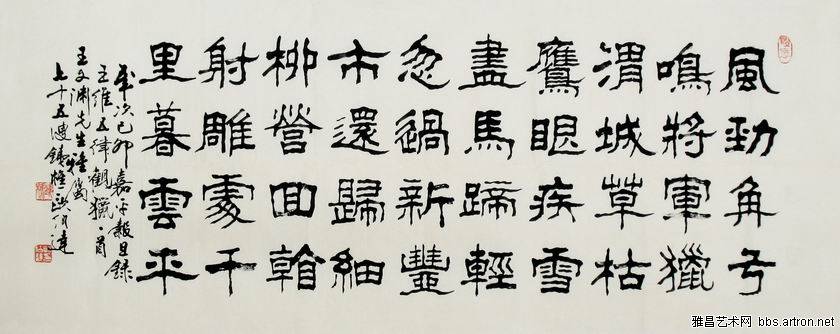 風勁角弓
鳴將軍獵
渭城草枯
鷹眼疾雪
盡馬蹄輕
忽過新豐
市還歸細
柳營回翰
射雕處千
里暮雲平
歲次己卯嘉平穀旦錄
王維五律觀獵一首
先生雅鑒
七十五叟
雅昌艺术网 bbs.artron.net